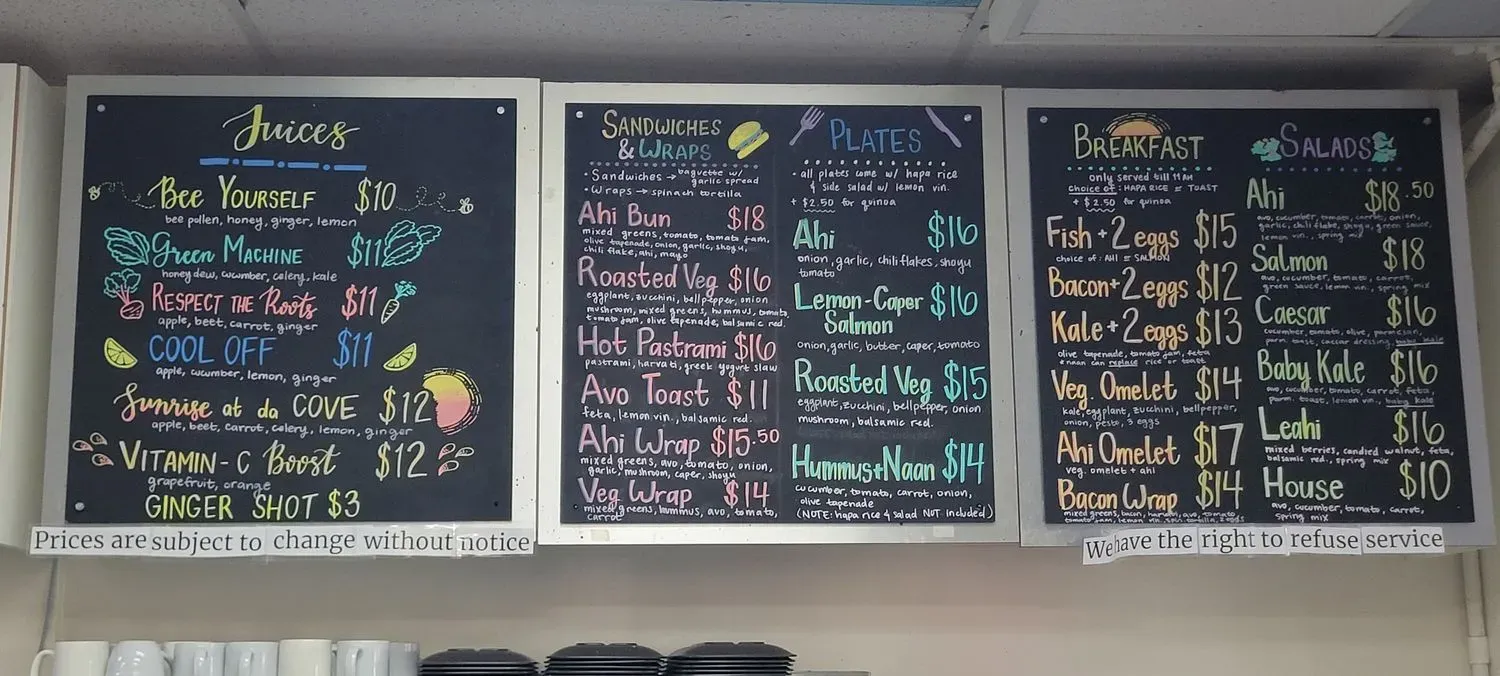 Juices
Bee Yourself $10
bee pollen, honey, ginger, lemon
Green Machine $11
honeydew, cucumber, celery, kale
Respect the Roots $11
apple, beet, carrot, ginger
COOL OFF $11
apple, cucumber, lemon, ginger
Sunrise at da COVE $12
apple, beet, carrot, celery, lemon, ginger
VITAMIN-C Boost $12
grapefruit, orange
GINGER SHOT $3
Prices are subject to change without notice
SANDWICHES
& WRAPS
• Sandwiches → baguette w/
garlic spread
• Wraps → spinach tortilla
Ahi Bun $18
mixed greens, tomato, tomato jam,
olive tapenade, onion, garlic, shoyu,
chili flake, ahi, mayo
Roasted Veg $16
eggplant, zucchini, bell pepper, onion
mushroom, mixed greens, hummus, tomato,
tomato jam, olive tapenade, balsamic red.
Hot Pastrami $16
pastrami, harvati, greek yogurt slaw
Avo Toast $11
feta, lemon vin., balsamic red.
Ahi Wrap $15.50
mixed greens, avo, tomato, onion,
garlic, mushroom, caper, shoyu
Veg Wrap $14
mixed greens, hummus, avo, tomato,
carrot
PLATES
• all plates come w/ hapa rice
& side salad w/ lemon vin.
+ $2.50 for quinoa
Ahi $16
onion, garlic, chili flakes, shoyu
tomato
Lemon-Caper $16
Salmon
onion, garlic, butter, caper, tomato
Roasted Veg $15
eggplant, zucchini, bell pepper, onion
mushroom, balsamic red.
Hummus+Naan $14
cucumber, tomato, carrot, onion,
olive tapenade
(NOTE: hapa rice & salad NOT included)
BREAKFAST
only served till 11 AM
choice of: HAPA RICE or TOAST
+ $2.50 for quinoa
Fish + 2 eggs $15
choice of: AHI or SALMON
Bacon + 2 eggs $12
Kale + 2 eggs $13
olive tapenade, tomato jam, feta
*naan can replace rice or toast
Veg. Omelet $14
kale, eggplant, zucchini, bellpepper,
onion, pesto, 3 eggs
Ahi Omelet $17
veg. omelet + ahi
Bacon Wrap $14
mixed greens, bacon, harvati, avo, tomato
tomato jam, lemon vin., spin. tortilla, 2 eggs
SALADS
Ahi $18.50
avo, cucumber, tomato, carrot, onion,
garlic, chili flake, shoyu, green sauce,
lemon vin., spring mix
Salmon $18
avo, cucumber, tomato, carrot,
green sauce, lemon vin., spring mix
Caesar $16
cucumber, tomato, olive, parmesan,
parm. toast, caesar dressing, baby kale
Baby Kale $16
avo, cucumber, tomato, carrot, feta,
parm. toast, lemon vin., baby kale
Leahi $16
mixed berries, candied walnut, feta,
balsamic red., spring mix
House $10
avo, cucumber, tomato, carrot,
spring mix
We have the right to refuse service